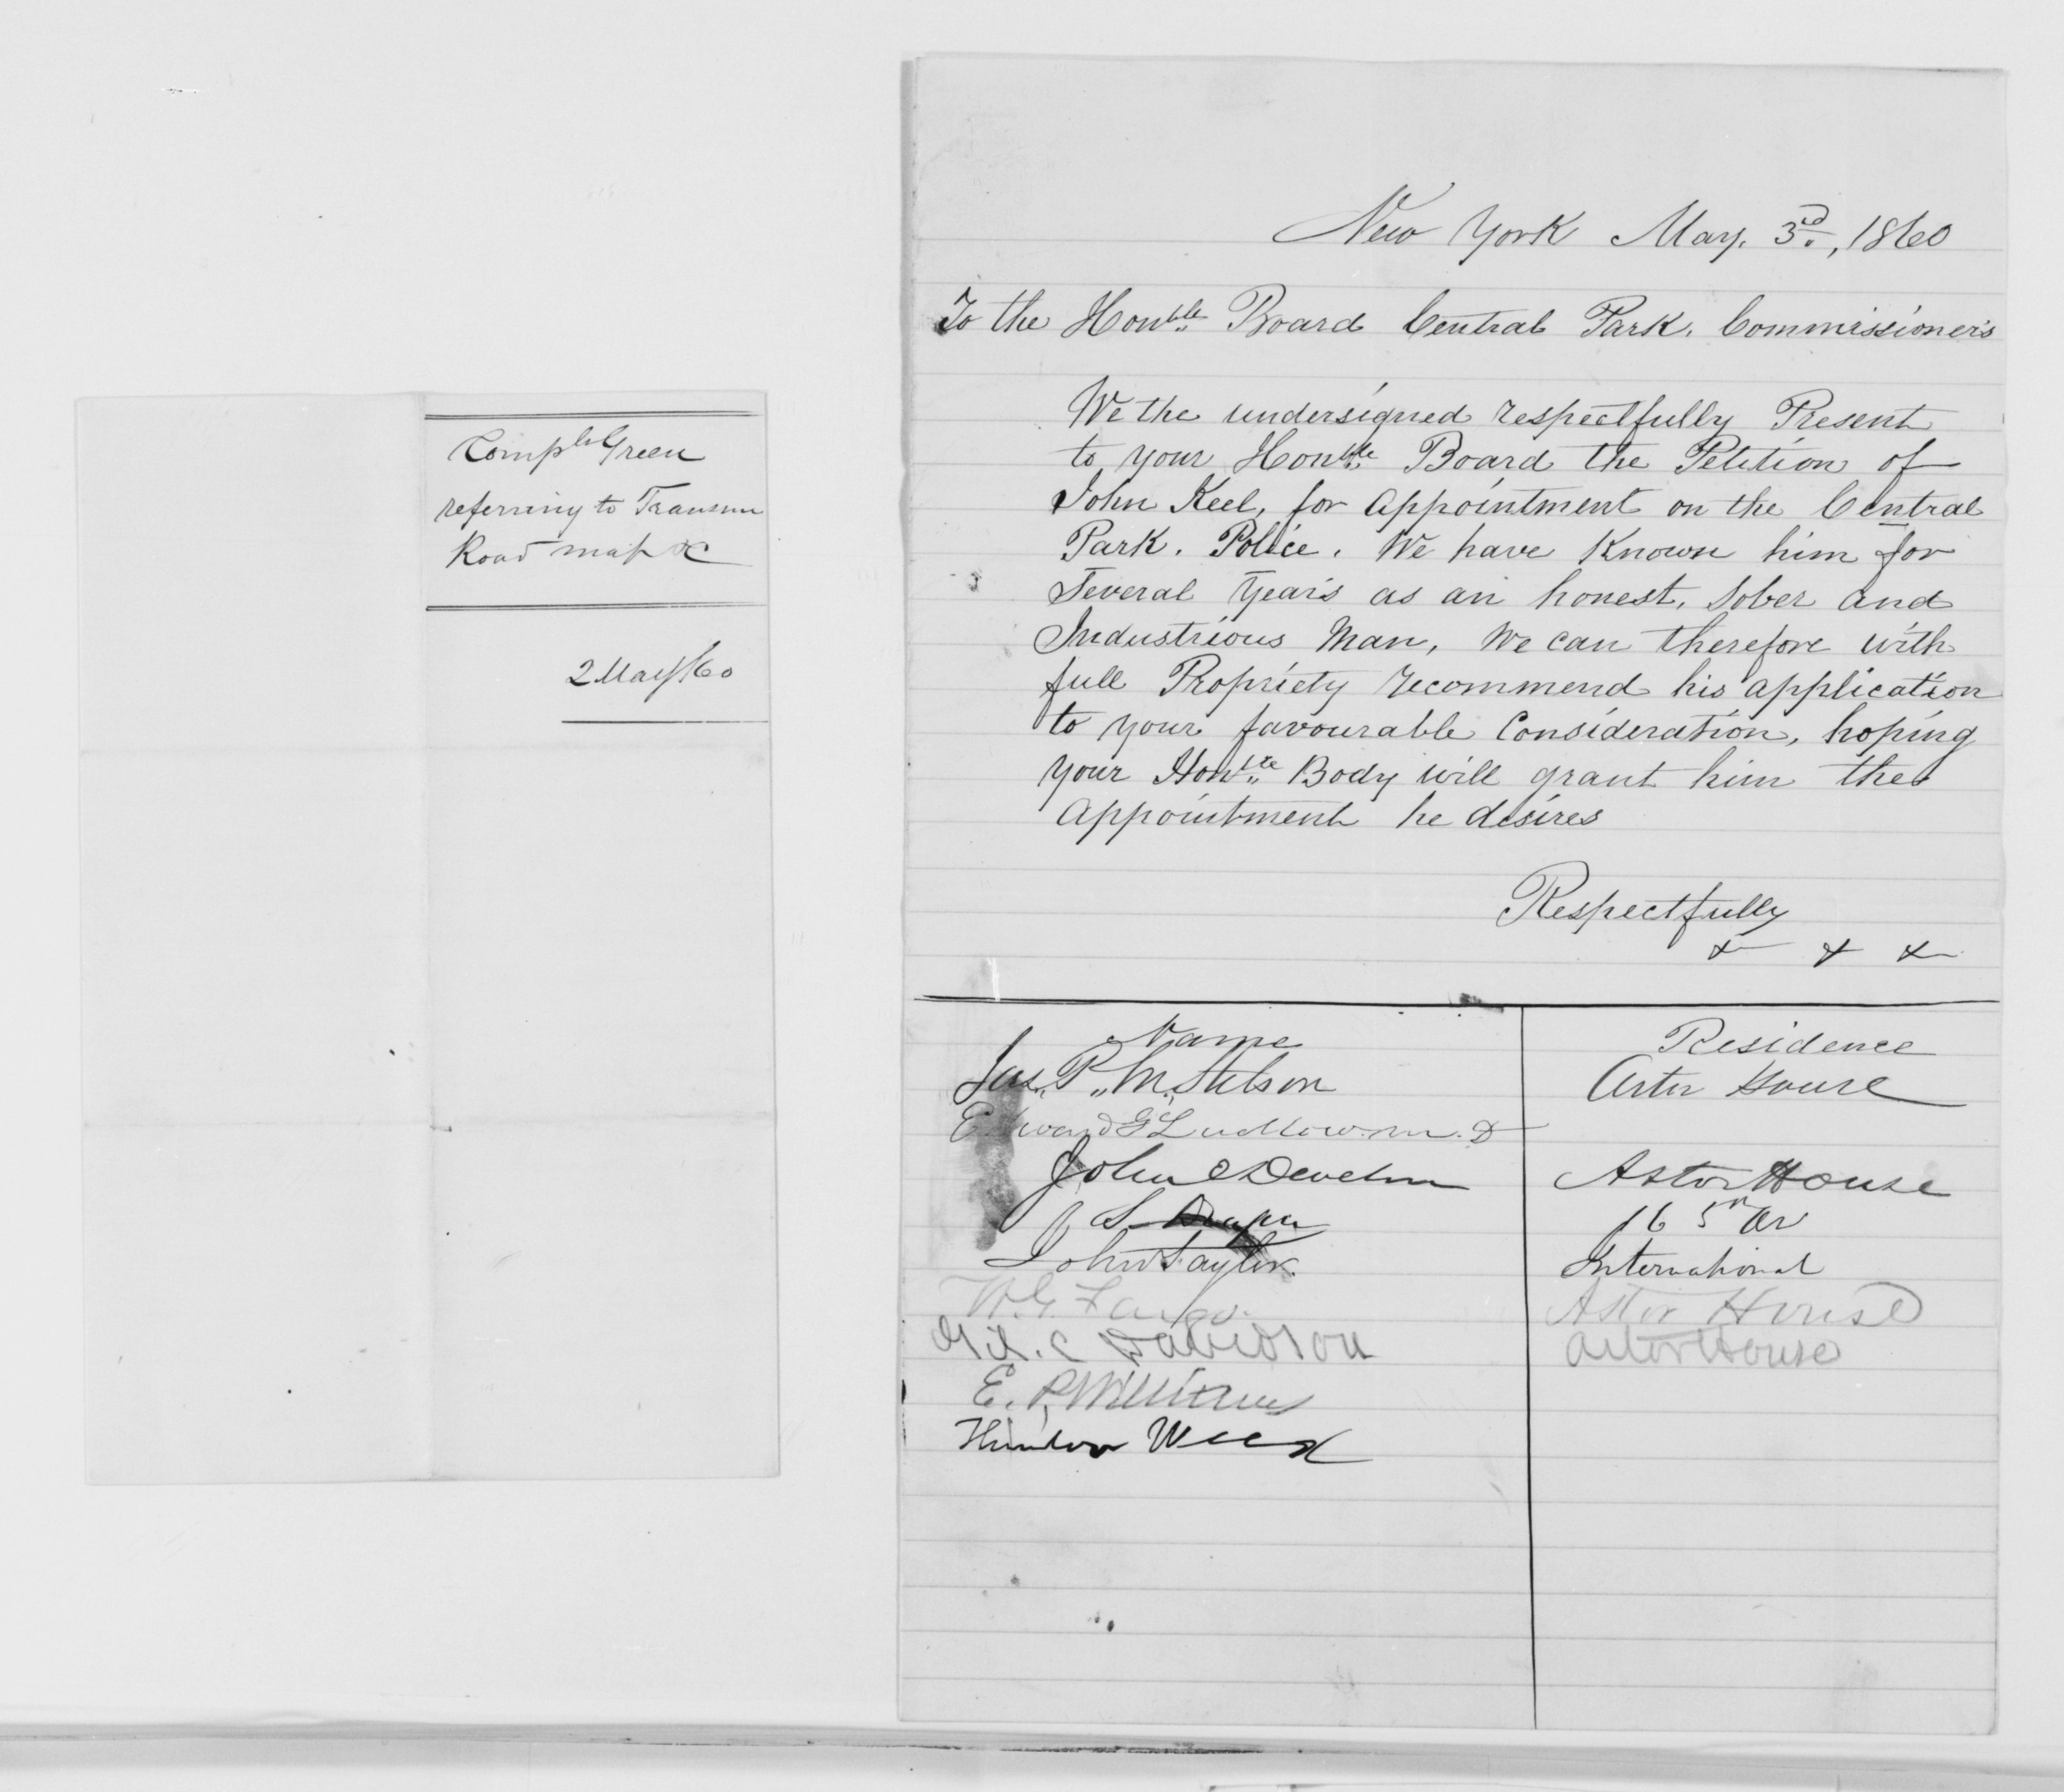 Comp^tr Green
referring to Transvn
Road map &c
2 May /60
New York May. 3rd., 1860
To the Honble Board Central Park. Commissioner's
We the undersigned respectfully Present
to your Honble Board the Petition of
John Keel, for appointment on the Central
Park. Police. We have Known him for
Several Year's as an honest, Sober and
Industrious Man, We can therefore with
full Propriety recommend his application
to your favourable Consideration, hoping
your Honble Body will grant him the
appointment he desires
Respectfully
& & &
Name
Residence
Jas. P. M. Stetson
Astor House
Edward G Ludlow. M. D
John Develin
Astor House
S Draper
16 5th Av
John Taylor.
International
W. G. Fargo.
Astor House
C Davidson
Astor House
E. P. Williams
Thurlow Weed